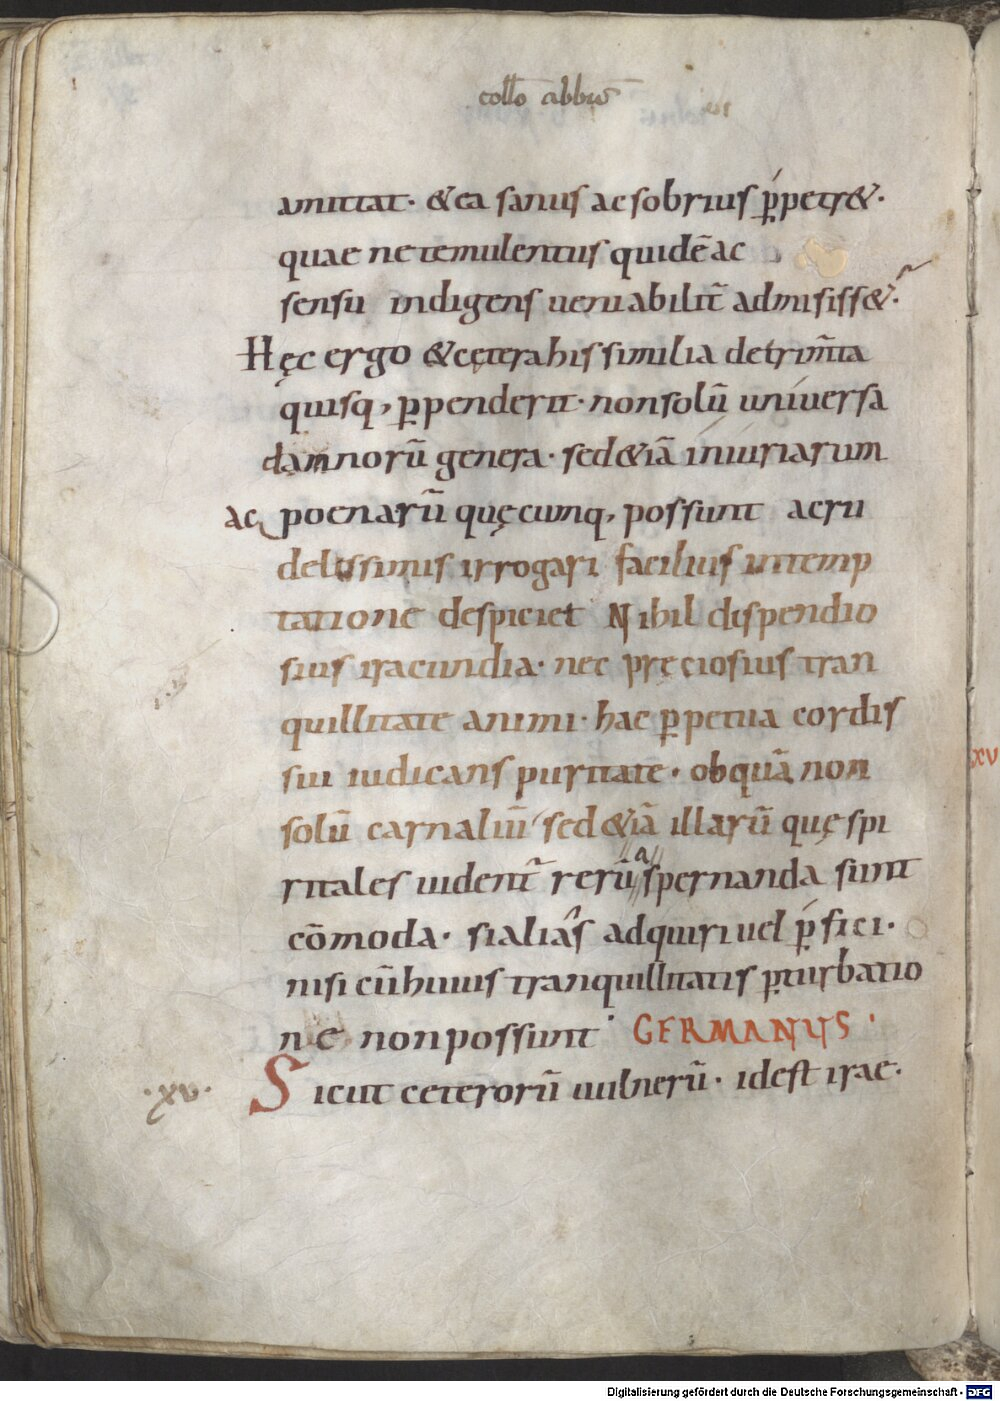 collo abbū
amittat· &ea sanus ac sobrius ꝑpetr&·
quae ne temulentus quidē ac
sensu indigens ueniabilit̄ admisiss&·
Hęc ergo &cętera his similia detrim̄ta
quisq, ꝑpenderit· non solū uniuersa
damnorū genera· sed&iā iniuriarum
ac poenarū quęcumq, possunt a cru
delissimis irrogari facilius intemp
tatione despiciet Nihil dispendio
sius iracundia· nec pręciosius tran
quillitate animi· hac ꝑpetua cordis
sui iudicans puritate· ob quā non
solū carnaliū sed&iā illarū quę spi
ritales uident̄ rerū a spernanda sunt
cōmoda· si alias adquiri uel ꝑfici·
nisi cū huius tranquillitatis ꝑturbatio
ne non possunt· GERMANUS·
·xv· Sicut ceterorū uulnerū· id est irae·
xv
Digitalisierung gefördert durch die Deutsche Forschungsgemeinschaft - DFG